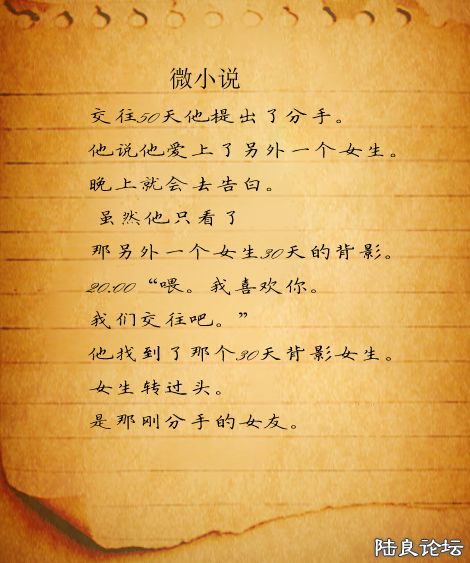 微小说
交往50天他提出了分手。
他说他爱上了另外一个女生。
晚上就会去告白。
虽然他只看了
那另外一个女生30天的背影。
20:00“喂。我喜欢你。
我们交往吧。”
他找到了那个30天背影女生。
女生转过头。
是那刚分手的女友。
陆良论坛